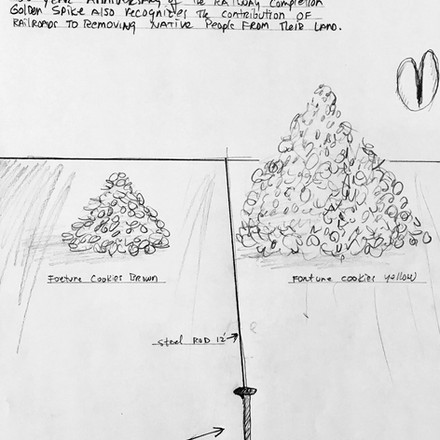 YEAR ANNIVERSARY of The RAILWAY COMPLETION
GOLDEN SPIKE ALSO RECOGNIZES THE CONTRIBUTION OF
RAILROADS TO REMOVING NATIVE PEOPLE FROM THEIR LAND.
Fortune Cookies Brown
Fortune cookies yellow
Steel ROD 12'